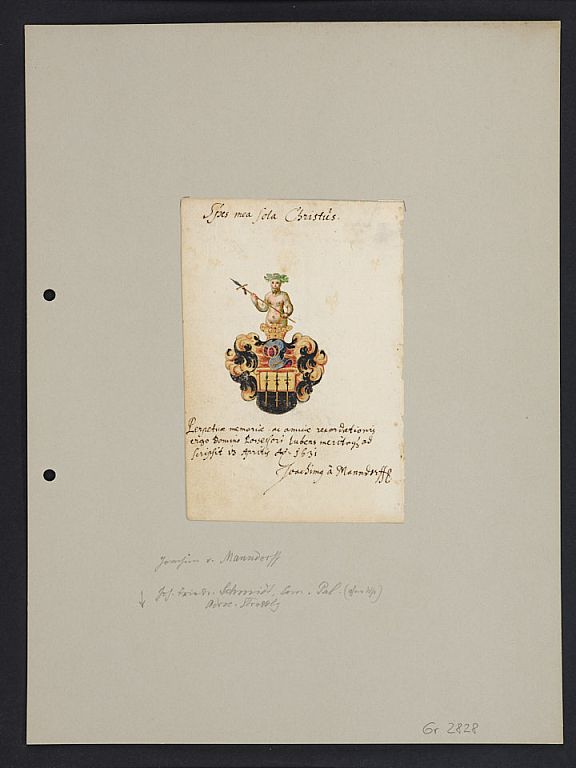 Spes mea sola Christus.
Perpetuæ memoriæ ac amicæ recordationis
ergo Domino Possessori lubens meritoq; ad
scripsit 13 Aprilis Aº. 1631
Joachimꝰ à Manndorff
Joachim v. Manndorff
Joh. Friedr. Schmidt, Com. Pal.
Gr 2828